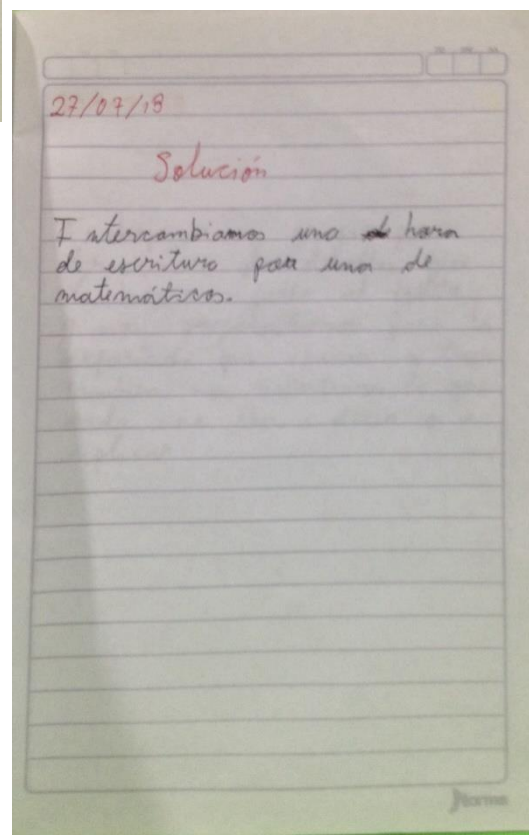 27/07/18
Solución
Intercambiamos una hora
de escritura por una de
matemáticas.
Norma